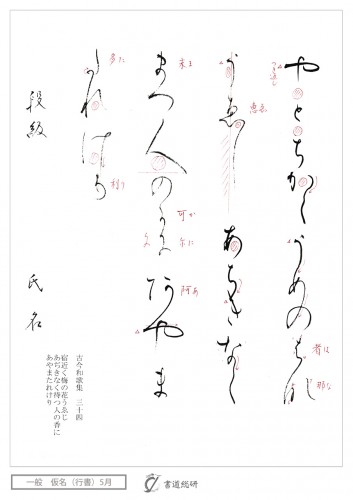 やとちかくうめの者那
うゑしあちきなく
末つ人の可尓阿やま
多れけ利
つ返し
惠ゑ
者は
那な
末ま
可か
尓に
阿あ
多た
利り
段級
氏名
古今和歌集 三十四
宿近く梅の花うゑじ
あぢきなく待つ人の香に
あやまたれけり
一般 仮名(行書)5月
書道総研